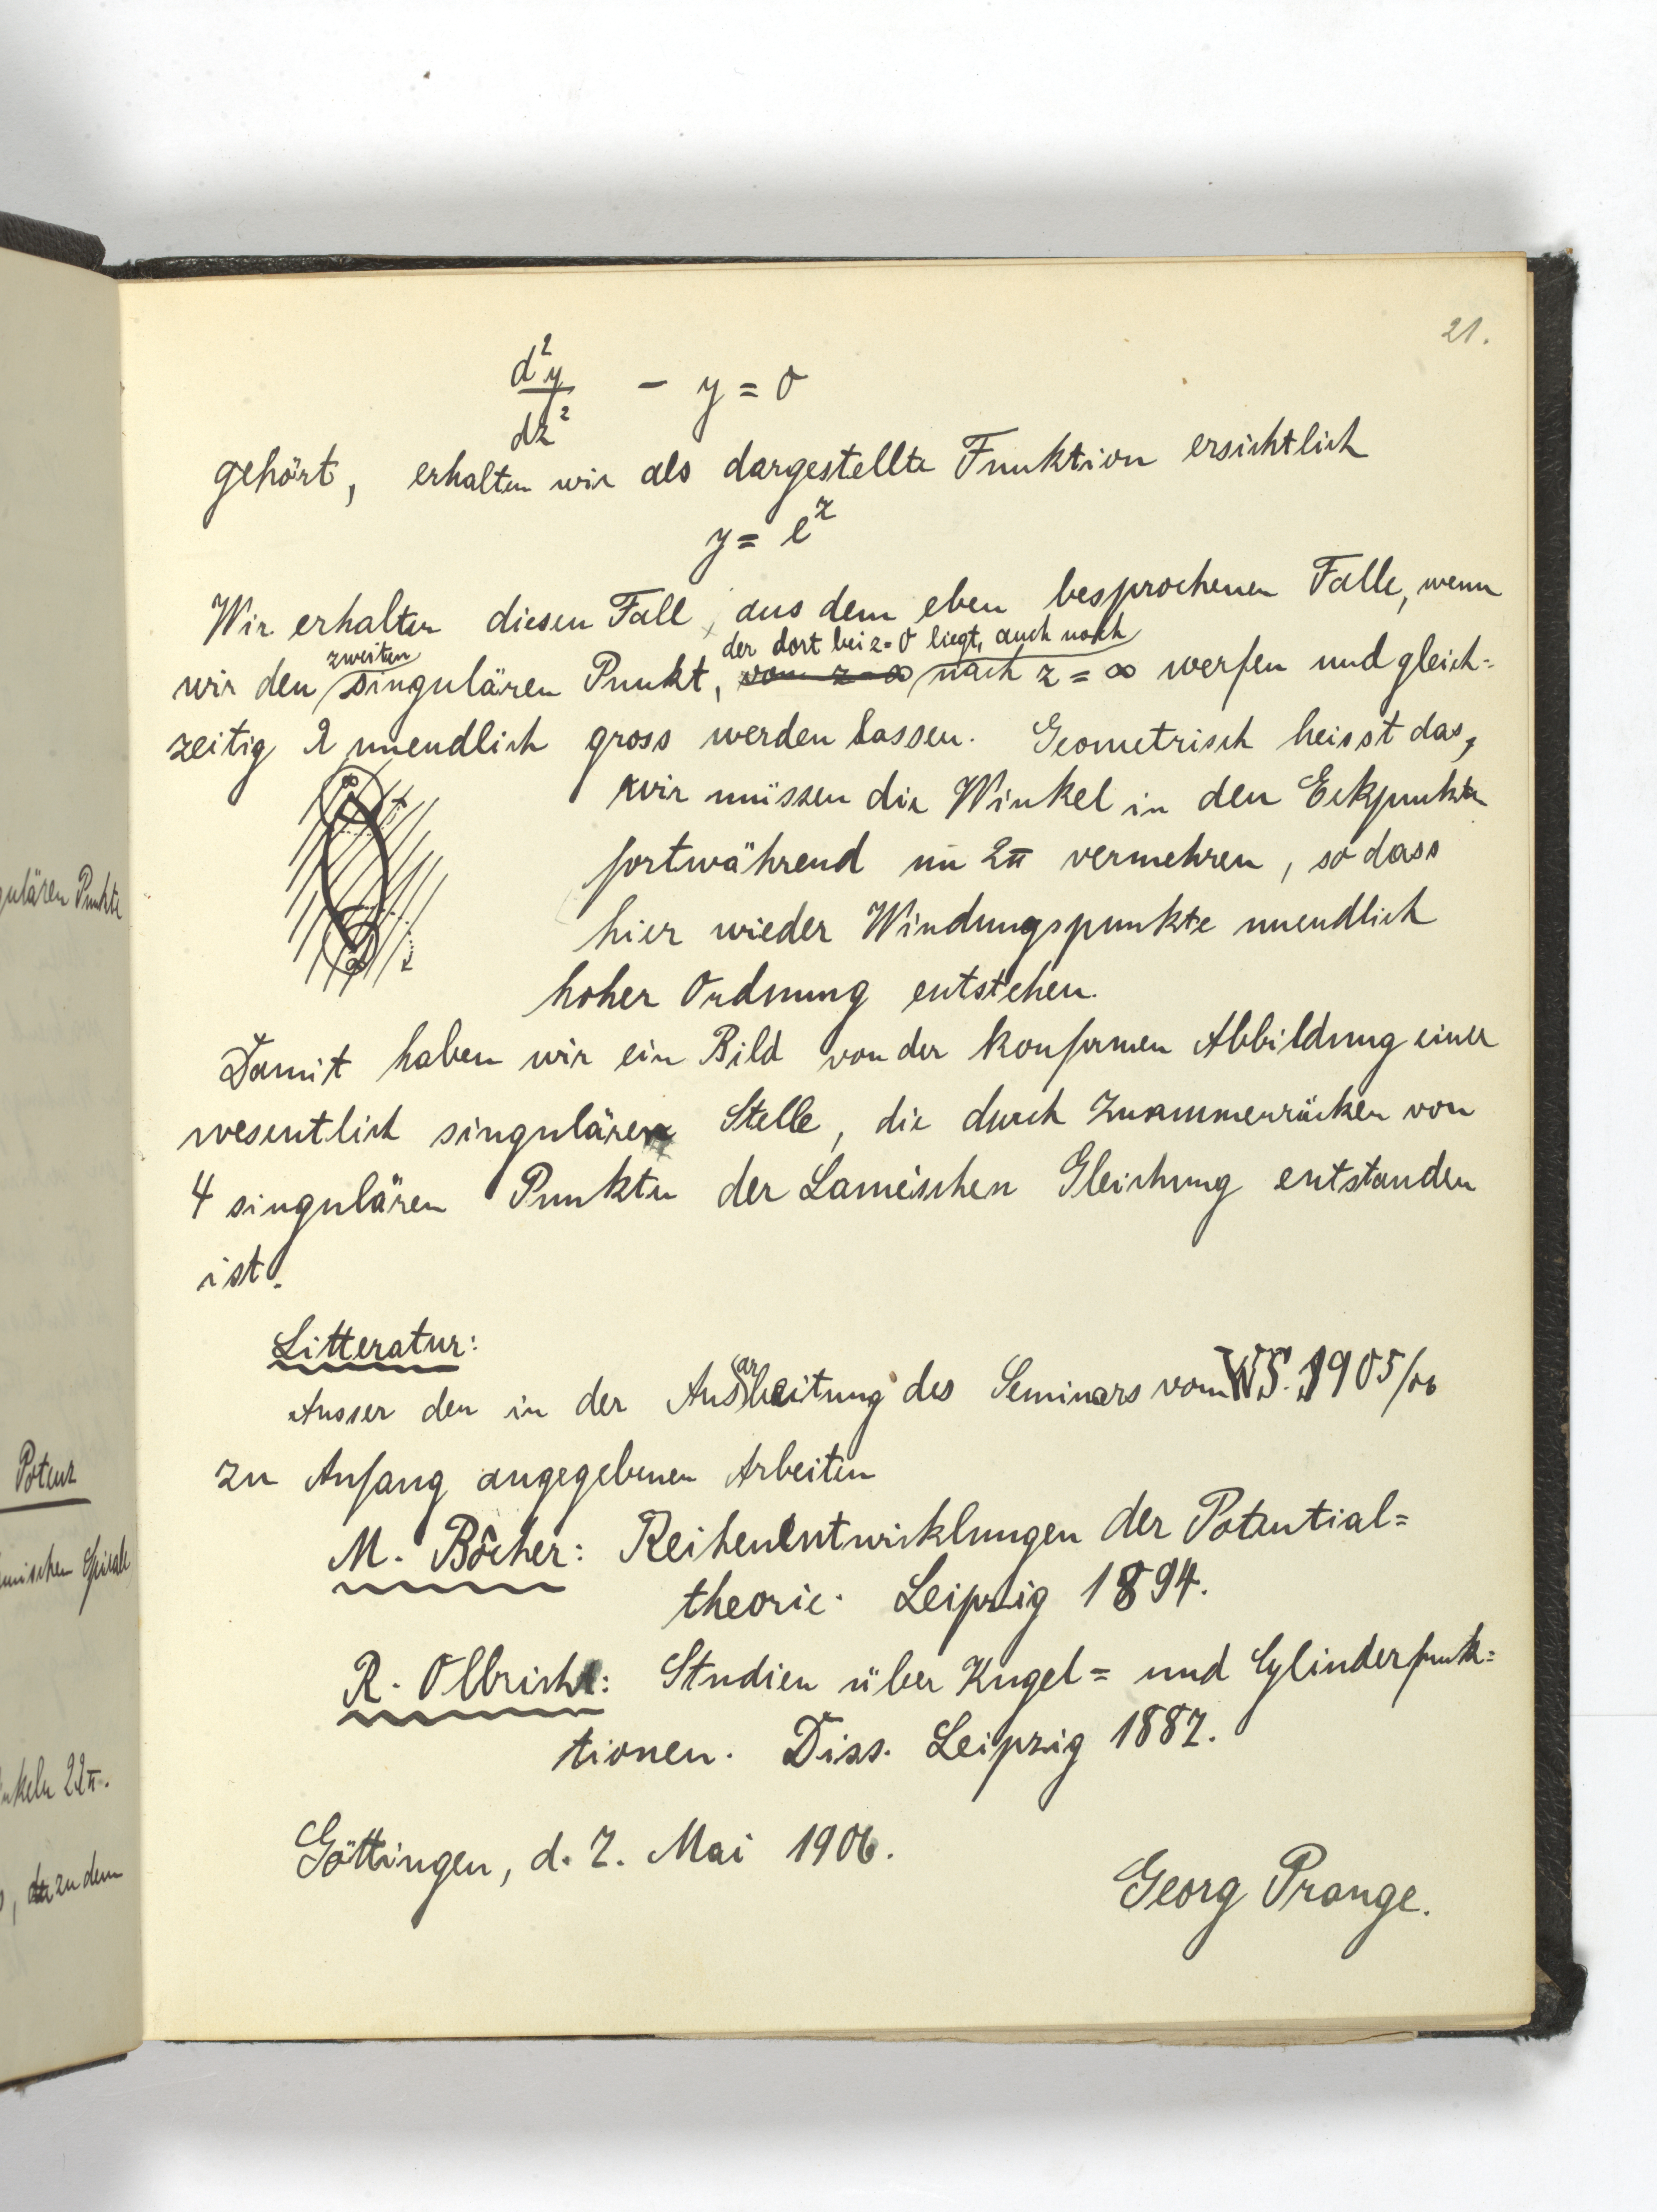 21.
d²y/dz² - y = 0
gehört, erhalten wir als dargestellte Funktion ersichtlich
y = e^z
Wir erhalten diesen Fall, aus dem eben besprochenen Falle, wenn
der dort bei z=0 liegt, auch noch
zweiten
wir den singulären Punkt, nach z = ∞ werfen und gleich=
zeitig λ unendlich gross werden lassen. Geometrisch heisst das,
wir müssen die Winkel in den Eckpunkten
fortwährend um 2π vermehren, so dass
hier wieder Windungspunkte unendlich
hoher Ordnung entstehen.
∞
∞
Damit haben wir ein Bild von der konformen Abbildung einer
wesentlich singulären Stelle, die durch Zusammenrücken von
4 singulären Punkten der Laméischen Gleichung entstanden
ist.
Litteratur:
Ausser den in der Ausarbeitung des Seminars vom WS. 1905/06
zu Anfang angegebenen Arbeiten
M. Bôcher: Reihenentwicklungen der Potential=
theorie. Leipzig 1894.
R. Olbricht: Studien über Kugel= und Cylinderfunk=
tionen. Diss. Leipzig 1887.
Göttingen, d. 7. Mai 1906.
Georg Prange.
gulären Punkte
Potenz
Spirale
nkeln 2λπ.
zu dem